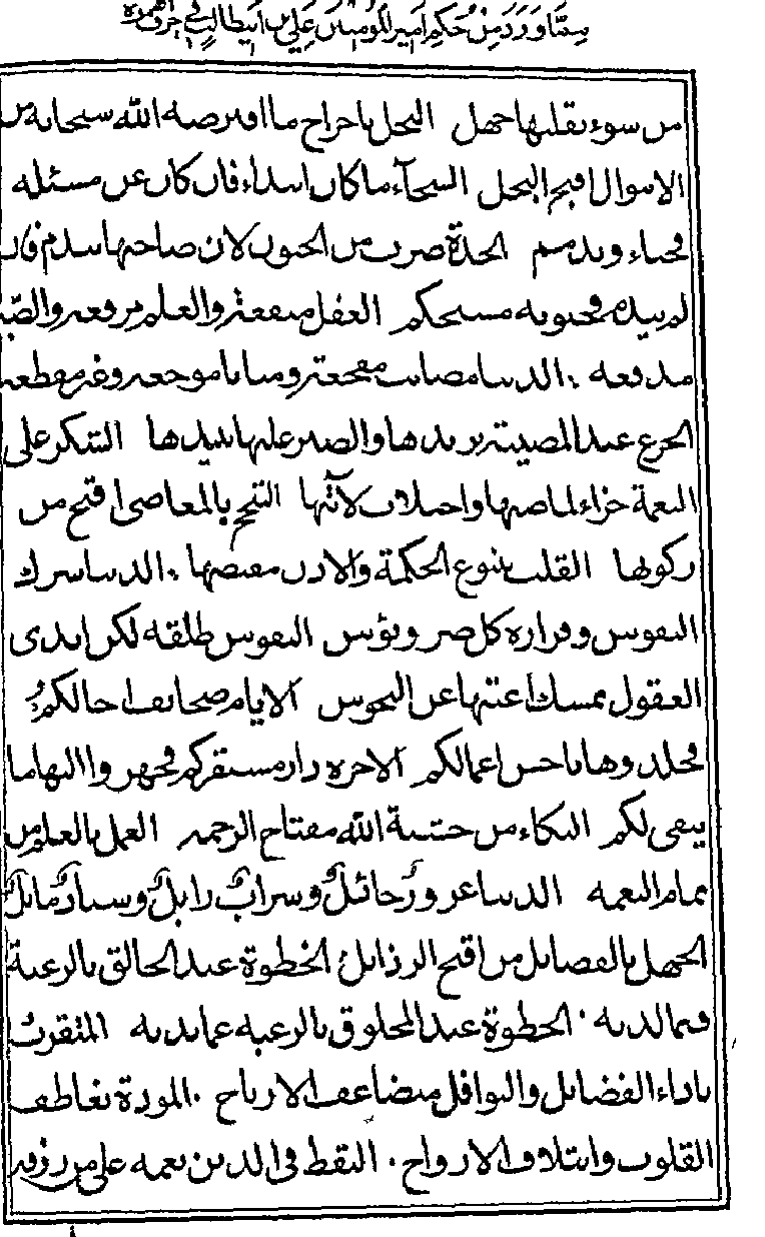 مما ورد من حكم أمير المؤمنين علي بن أبي طالب في حرف الهمزة
من سوء تقلبها جهل البخل باخراج ما افترضه الله سبحانه من
الاموال اقبح البخل السخآء ما كان ابتداء فان كان عن مسئلة
فحياء وتذمم الحدة ضرب من الجنون لان صاحبها يندم فان
لم يندم فجنونه مستحكم العقل منفعة والعلم مرفعة والصبر
مدفعة الدنيا مصائب مفجعة ومنايا موجعة وغير مقطعة
الجزع عند المصيبة يزيدها والصبر عليها يبيدها الشكر على
النعمة جزاء لماضيها واجتلاب لآتيها التبجح بالمعاصي اقبح من
ركوبها القلب ينبوع الحكمة والاذن مغيضها الدنيا شرك
النفوس وقرارة كل ضر وبؤس النفوس طلقة لكن ايدى
العقول تمسك اعنتها عن النحوس الايام صحايف اجالكم
فخلدوها باحسن اعمالكم الاخرة دار مستقركم فجهزوا اليها ما
يبقى لكم البكاء من خشية الله مفتاح الرحمة العمل بالعلم من
تمام النعمة الدنيا غرور حائل وسراب زايل وسناد مائل
الجهل بالفضايل من اقبح الرذايل الخطوة عند الخالق بالرغبة
فيما لديه الحظوة عند المخلوق بالرغبة عما يديه المتقرب
باداء الفضايل والنوافل متضاعف الارباح المودة تعاطف
القلوب وائتلاف الارواح التيقظ في الدين نعمة على من رزقه